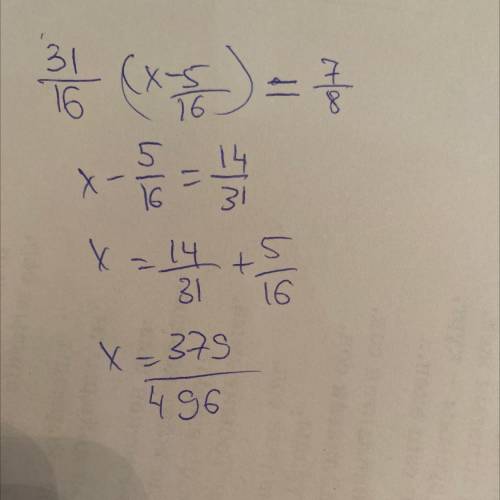 31/16 (x - 5/16) = 7/8
x - 5/16 = 14/31
x = 14/31 + 5/16
x = 379/496